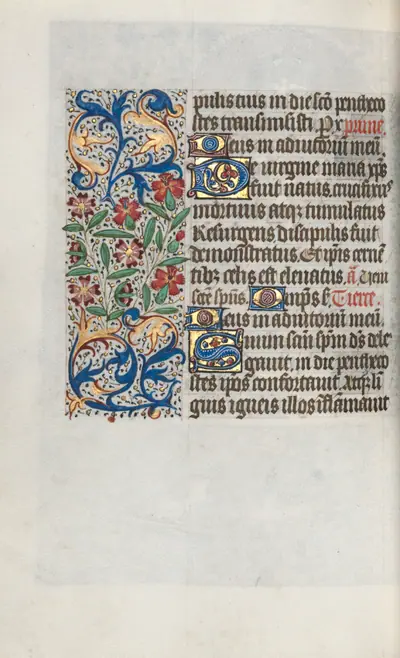 pulis tuis in die scō pentheco
stes transmisisti. Per x prime
Deus in adiutoriū meū
De virgine maria xp̄s
fuit natus, crucifixus
mortuus atqz tumulatus
Resurgens discipulis fuit
demonstratus. Et ipis cerne
tibz celis est eleuatus. a Veni
sācte spūs. Omps s̄ Tierce.
Deus in adiutoriū meū
Suum san spm ds dele
gauit, in die pentheco
stes ipos confortauit. Atqz li
guis igneis illos īflāmauit